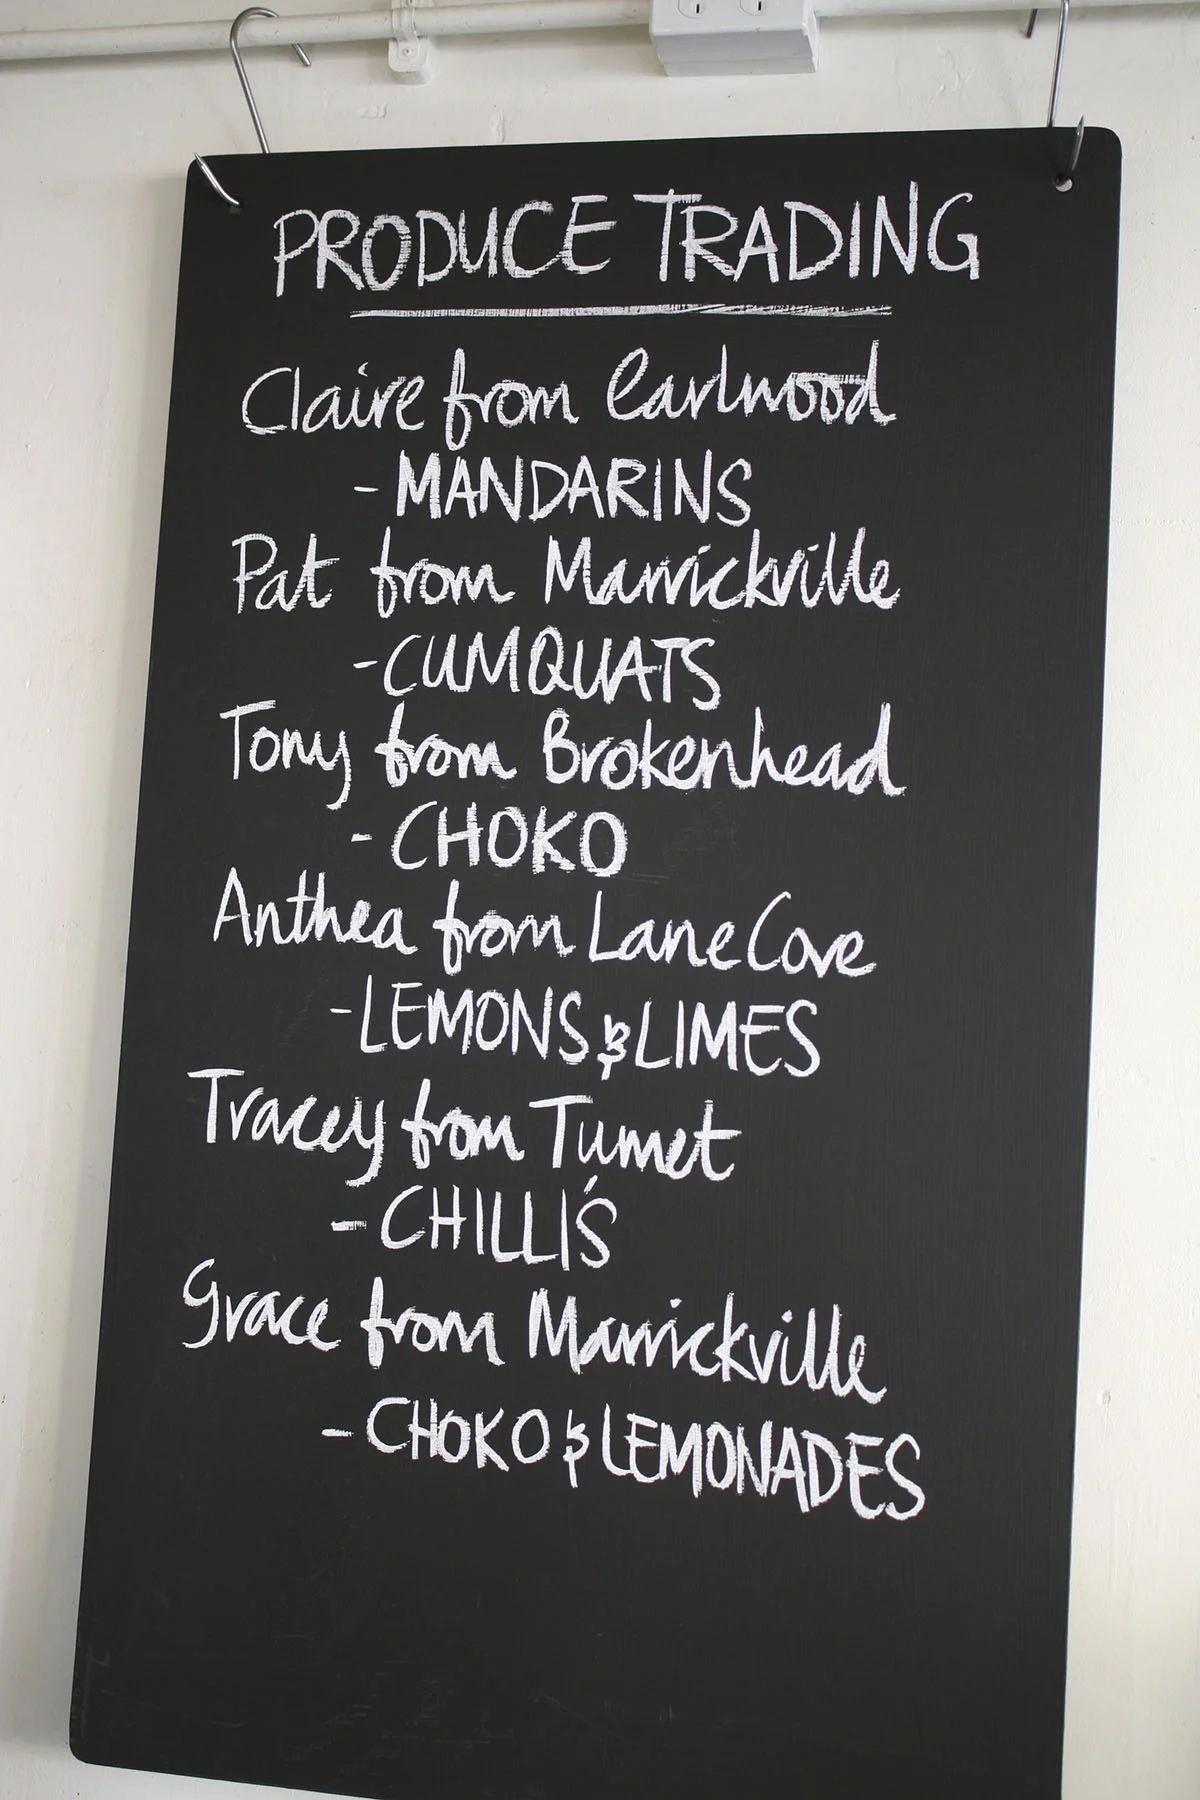 PRODUCE TRADING
Claire from Earlwood
- MANDARINS
Pat from Marrickville
- CUMQUATS
Tony from Brokenhead
- CHOKO
Anthea from Lane Cove
- LEMONS & LIMES
Tracey from Tumet
- CHILLI'S
Grace from Marrickville
- CHOKO & LEMONADES